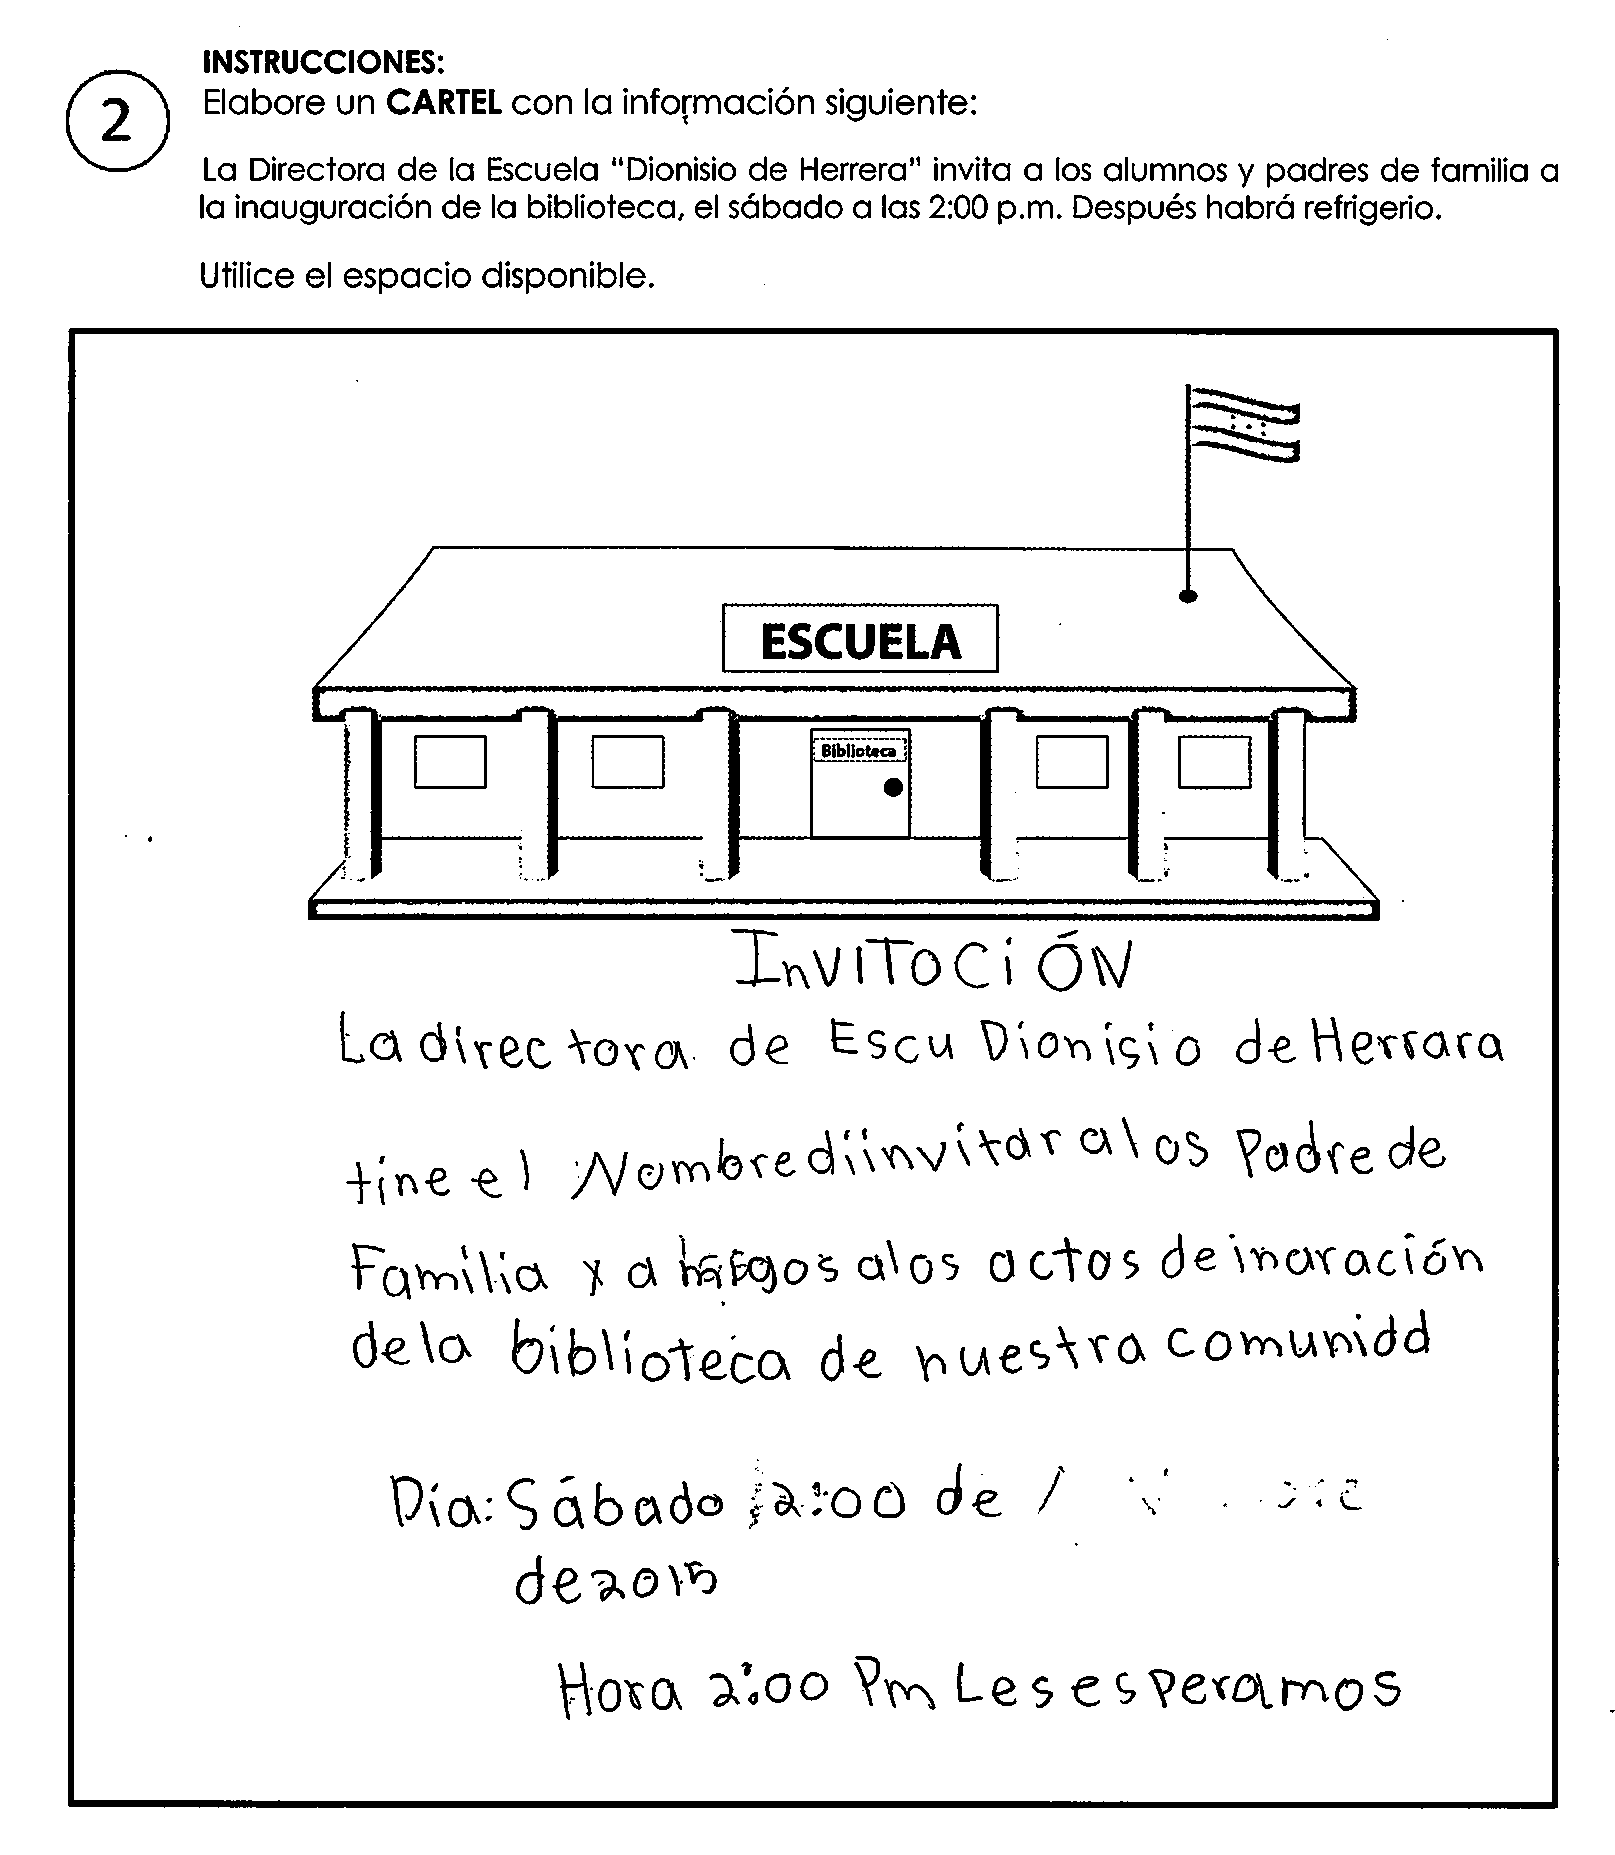 INSTRUCCIONES:
2
Elabore un CARTEL con la información siguiente:
La Directora de la Escuela "Dionisio de Herrera" invita a los alumnos y padres de familia a
la inauguración de la biblioteca, el sábado a las 2:00 p.m. Después habrá refrigerio.
Utilice el espacio disponible.
ESCUELA
Biblioteca
InVITOCiÓN
La directora de Escu Dionisio de Herrara
tine el Nombre di invitar a los Padre de
Familia y a a los actos de inaración
de la biblioteca de nuestra comunidd
Día: Sábado 2:00 de
de 2015
Hora 2:00 Pm Les esperamos